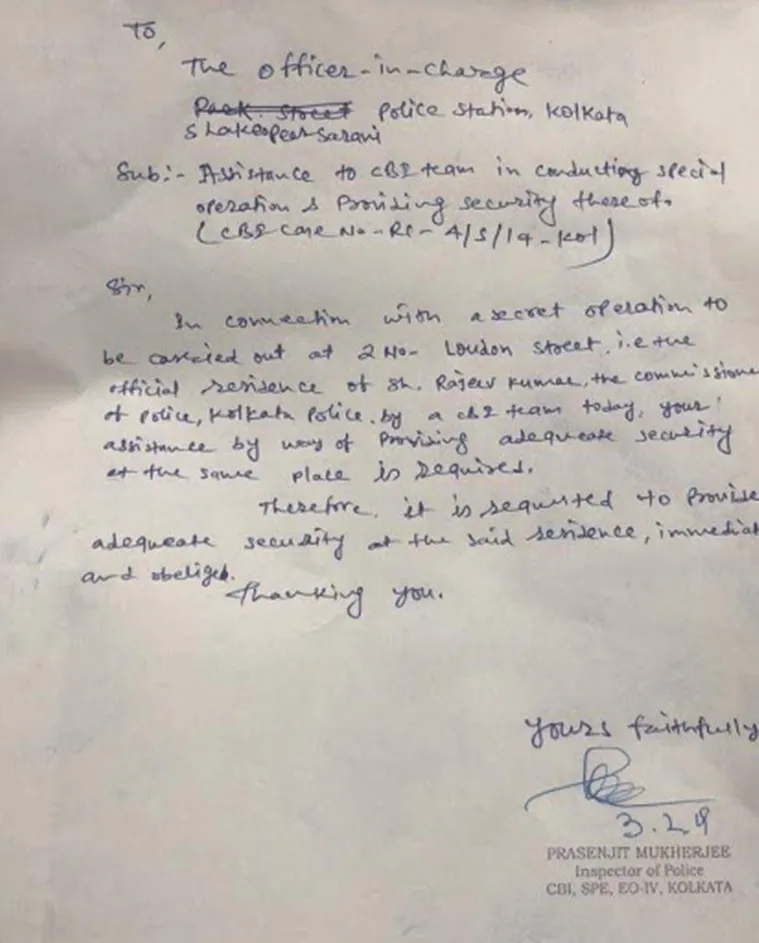 To,
The officer-in-charge
Park street Police Station, Kolkata
Shakespear Sarani
Sub:- Assistance to CBI team in conducting special
operation & Providing security thereof.
(CBI Case No-RC-4/S/14-Kol)
Sir,
In connection with a secret operation to
be carried out at 2 No- Loudon Street, i.e the
official residence of Sh. Rajeev Kumar, the commissione
of Police, Kolkata Police. by a CBI team today, your
assistance by way of Providing adequeate security
at the same place is required.
Therefore, it is requested to Provide
adequeate security at the said residence, immediat
and obeliged.
Thanking you.
Yours faithfully
3.2.19
PRASENJIT MUKHERJEE
Inspector of Police
CBI, SPE, EO-IV, KOLKATA